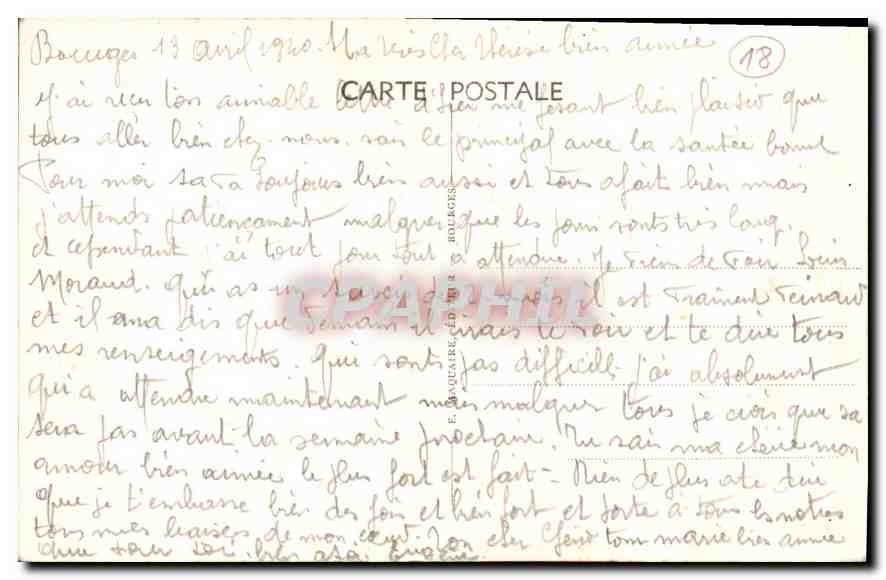 Bourges 13 avril 1940. Ma très cher Thérèse bien aimée
18
CARTE POSTALE
j'ai reçu ton aimable lettre d'hier me fesant bien plaisir que
tous aller bien chez nous. sais le principal avec la santée bonne
Pour moi sa va toujours bien aussi et tous afait bien mais
j'attends patiençament malgrer que les jours sonts très long.
et cependant j'ai tout jour tout a attendre. Je viens de voir Louis
Moraud. qui as un de mois il est vraiment
et il ma dis que demain il irais te voir et te dire tous
mes renseigements. qui sonts pas difficille j'ai absolument
qu'a attendre maintenant mais malgrer tous je crois que sa
sera pas avant la semaine prochaine. Tu sais ma chérie mon
amour bien aimée le plus fort est fait - Rien de plus a te dire
que je t'embrasse bien des fois et bien fort et porte a tous les notres
tous mes baisers de mon cœur. Ton cher tom marie bien aimée
que pour toi. bien a toi. Eugène.
E. MAQUAIRE, ÉDITEUR BOURGES
CPAPHIL